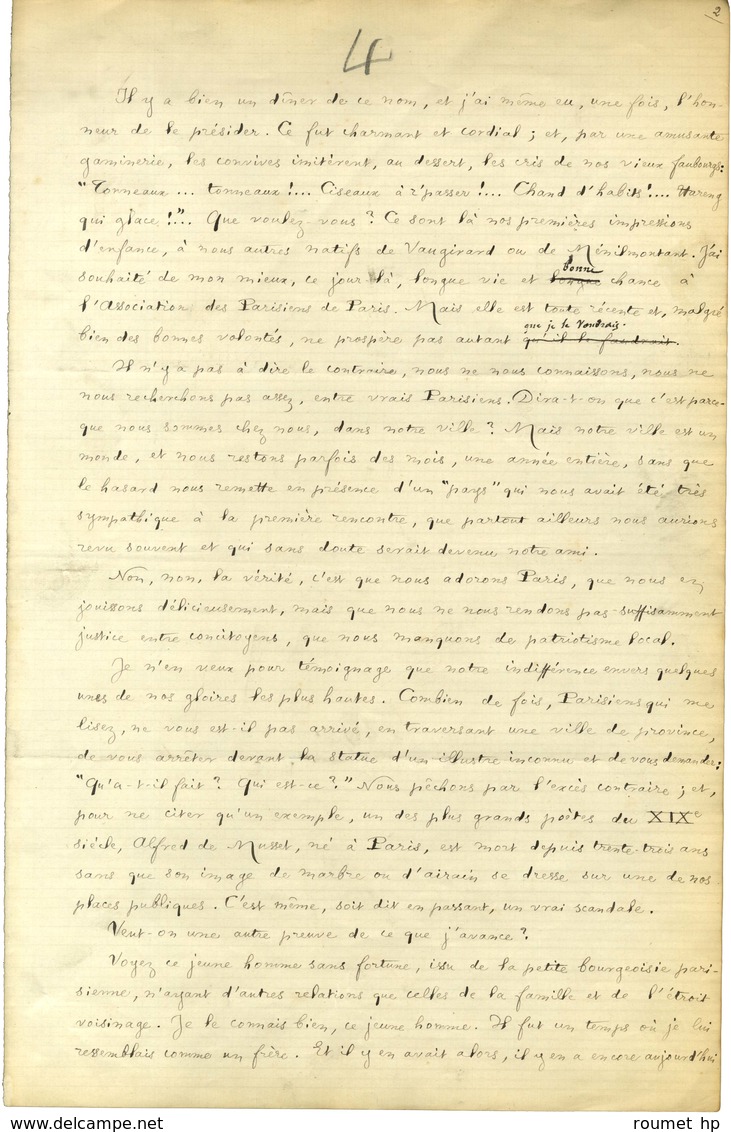 2
4
Il y a bien un dîner de ce nom, et j'ai même eu, une fois, l'hon-
neur de le présider. Ce fut charmant et cordial ; et, par une amusante
gaminerie, les convives imitèrent, au dessert, les cris de nos vieux faubourgs:
"Tonneaux ... tonneaux !... Ciseaux à r'passer !... Chand d'habits !... Hareng
qui glace !"... Que voulez-vous ? Ce sont là nos premières impressions
d'enfance, à nous autres natifs de Vaugirard ou de Ménilmontant. J'ai
bonne
souhaité de mon mieux, ce jour-là, longue vie et longue chance à
l'Association des Parisiens de Paris. Mais elle est toute récente et, malgré
que je le voudrais.
bien des bonnes volontés, ne prospère pas autant qu'il le faudrait.
Il n'y a pas à dire le contraire, nous ne nous connaissons, nous ne
nous recherchons pas assez, entre vrais Parisiens. Dira-t-on que c'est parce-
que nous sommes chez nous, dans notre ville ? Mais notre ville est un
monde, et nous restons parfois des mois, une année entière, sans que
le hasard nous remette en présence d'un "pays" qui nous avait été très
sympathique à la première rencontre, que partout ailleurs nous aurions
revu souvent et qui sans doute serait devenu notre ami.
Non, non, la vérité, c'est que nous adorons Paris, que nous en
jouissons délicieusement, mais que nous ne nous rendons pas suffisamment
justice entre concitoyens, que nous manquons de patriotisme local.
Je n'en veux pour témoignage que notre indifférence envers quelques
unes de nos gloires les plus hautes. Combien de fois, Parisiens qui me
lisez, ne vous est-il pas arrivé, en traversant une ville de province,
de vous arrêter devant la statue d'un illustre inconnu et de vous demander:
"Qu'a-t-il fait ? Qui est-ce ?" Nous péchons par l'excès contraire ; et,
pour ne citer qu'un exemple, un des plus grands poètes du XIXe
siècle, Alfred de Musset, né à Paris, est mort depuis trente-trois ans
sans que son image de marbre ou d'airain se dresse sur une de nos
places publiques. C'est même, soit dit en passant, un vrai scandale.
Veut-on une autre preuve de ce que j'avance ?
Voyez ce jeune homme sans fortune, issu de la petite bourgeoisie pari-
sienne, n'ayant d'autres relations que celles de la famille et de l'étroit
voisinage. Je le connais bien, ce jeune homme. Il fut un temps où je lui
ressemblais comme un frère. Et il y en avait alors, il y en a encore aujourd'hui
roumet hp